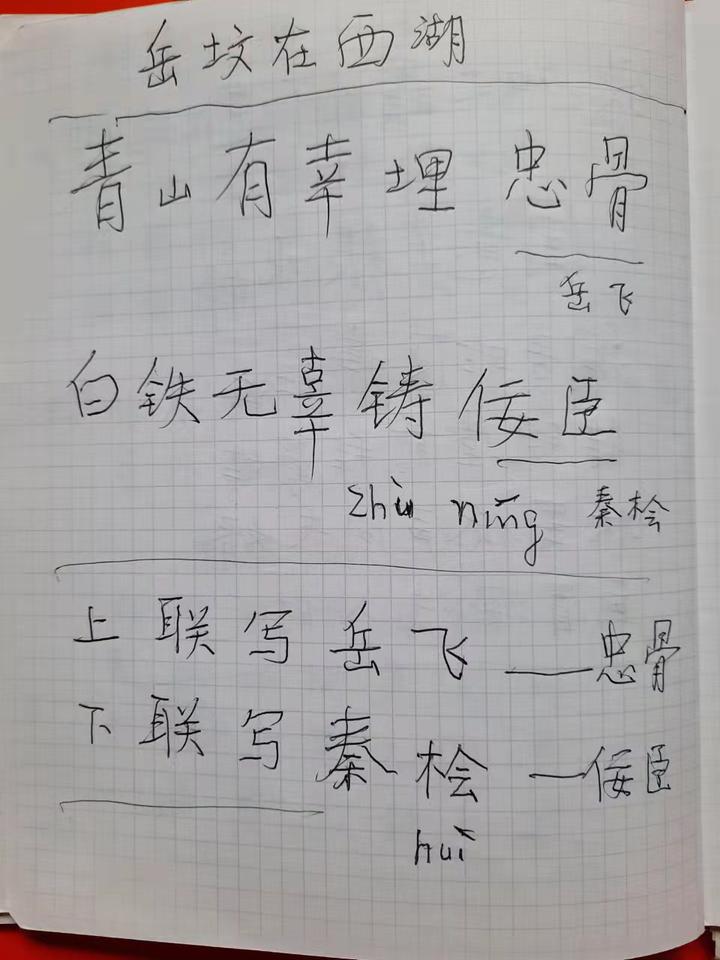 岳坟在西湖
青山有幸埋忠骨
岳飞
白铁无辜铸佞臣
zhù nìng 秦桧
上联写岳飞——忠骨
下联写秦桧——佞臣
huì